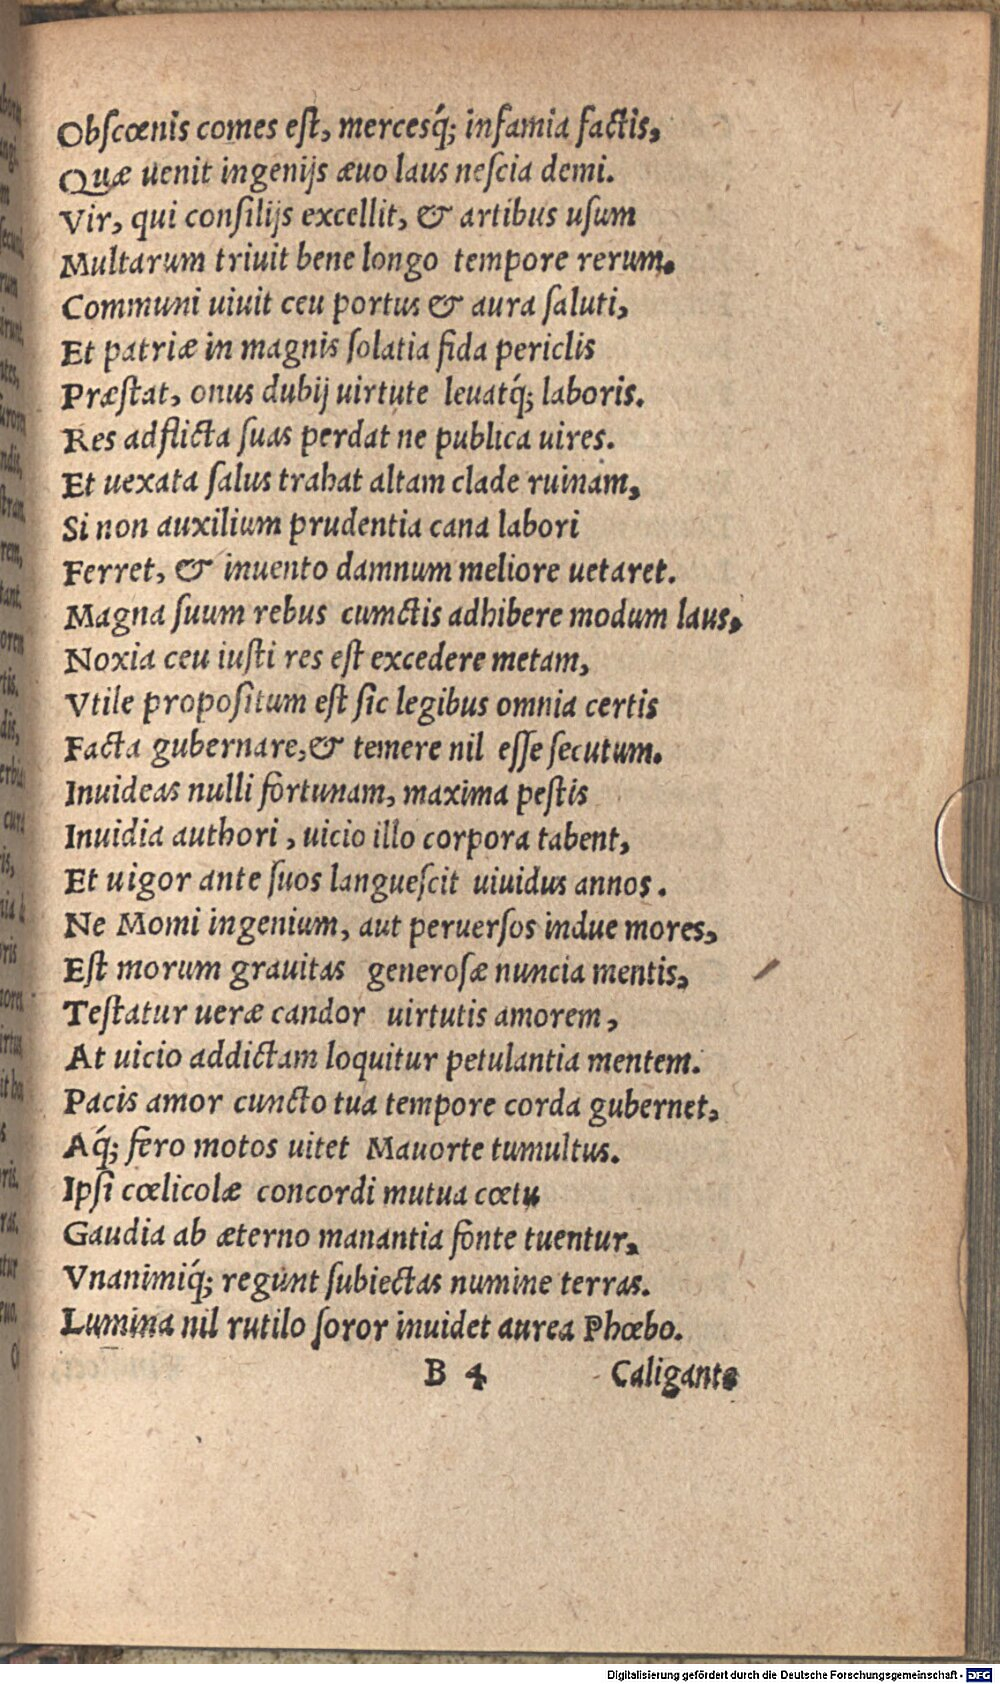 Obſcœnis comes eſt, mercesq́; infamia factis,
Quæ uenit ingenijs æuo laus neſcia demi.
Vir, qui conſilijs excellit, & artibus uſum
Multarum triuit bene longo tempore rerum.
Communi uiuit ceu portus & aura ſaluti,
Et patriæ in magnis ſolatia fida periclis
Præſtat, onus dubij uirtute leuatq́; laboris.
Res adflicta ſuas perdat ne publica uires.
Et uexata ſalus trahat altam clade ruinam,
Si non auxilium prudentia cana labori
Ferret, & inuento damnum meliore uetaret.
Magna ſuum rebus cumctis adhibere modum laus,
Noxia ceu iuſti res eſt excedere metam,
Vtile propoſitum eſt ſic legibus omnia certis
Facta gubernare, & temere nil eſſe ſecutum.
Inuideas nulli fortunam, maxima peſtis
Inuidia authori, uicio illo corpora tabent,
Et uigor ante ſuos langueſcit uiuidus annos.
Ne Momi ingenium, aut peruerſos indue mores,
Eſt morum grauitas generoſæ nuncia mentis,
Teſtatur ueræ candor uirtutis amorem,
At uicio addictam loquitur petulantia mentem.
Pacis amor cuncto tua tempore corda gubernet,
Aq́; fero motos uitet Mauorte tumultus.
Ipſi cœlicolæ concordi mutua cœtu
Gaudia ab æterno manantia fonte tuentur.
Vnanimiq́; regunt ſubiectas numine terras.
Lumina nil rutilo ſoror inuidet aurea Phœbo.
B 4 Caligante
Digitalisierung gefördert durch die Deutsche Forschungsgemeinschaft - DFG